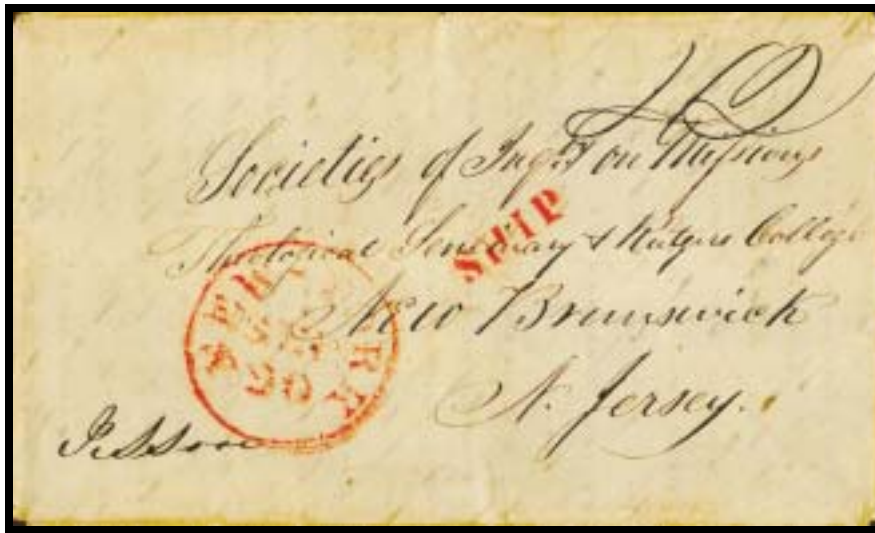 Societies of Inqy on Missions
Theological Seminary & Rutgers College
New Brunswick
N. Jersey.
SHIP
NEW YORK
20